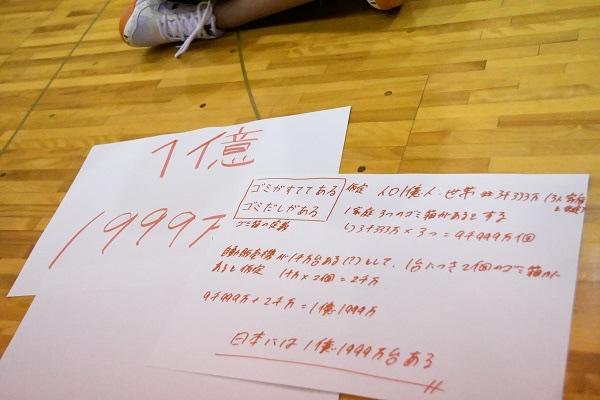 1億
1999万
ゴミがすててある
ゴミだしがある
ゴミ箱の定義
仮定 人口1億人、世帯 3千333万 (3人家族
1家庭 3つのゴミ箱があるとする
3千333万×3つ=9千999万個
自動販売機が1千万台ある(?)として、1台につき2個のゴミ箱が
あると仮定 1千万×2個=2千万
9千999万+2千万=1億1999万
日本には1億1999万台ある